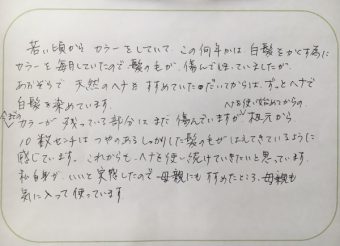 若い頃から カラーをしていて、この何年かは 白髪をかくす為に
カラーを 毎月していたので 髪の毛が、傷んでしまっていましたが、
おおぞらで 天然のヘナを すすめていただいてからは、ずっとヘナで
白髪を染めています。
ヘナを使い始めてからの、
今までの
カラーが 残っている部分は まだ 傷んでいますが 根元から
10数センチは つやのある しっかりした髪の毛が はえてきているように
感じています。これからも、ヘナを使い続けていきたいと思っています。
私自身が、いいと実感したので 母親にも すすめたところ、母親も
気に入って 使っています